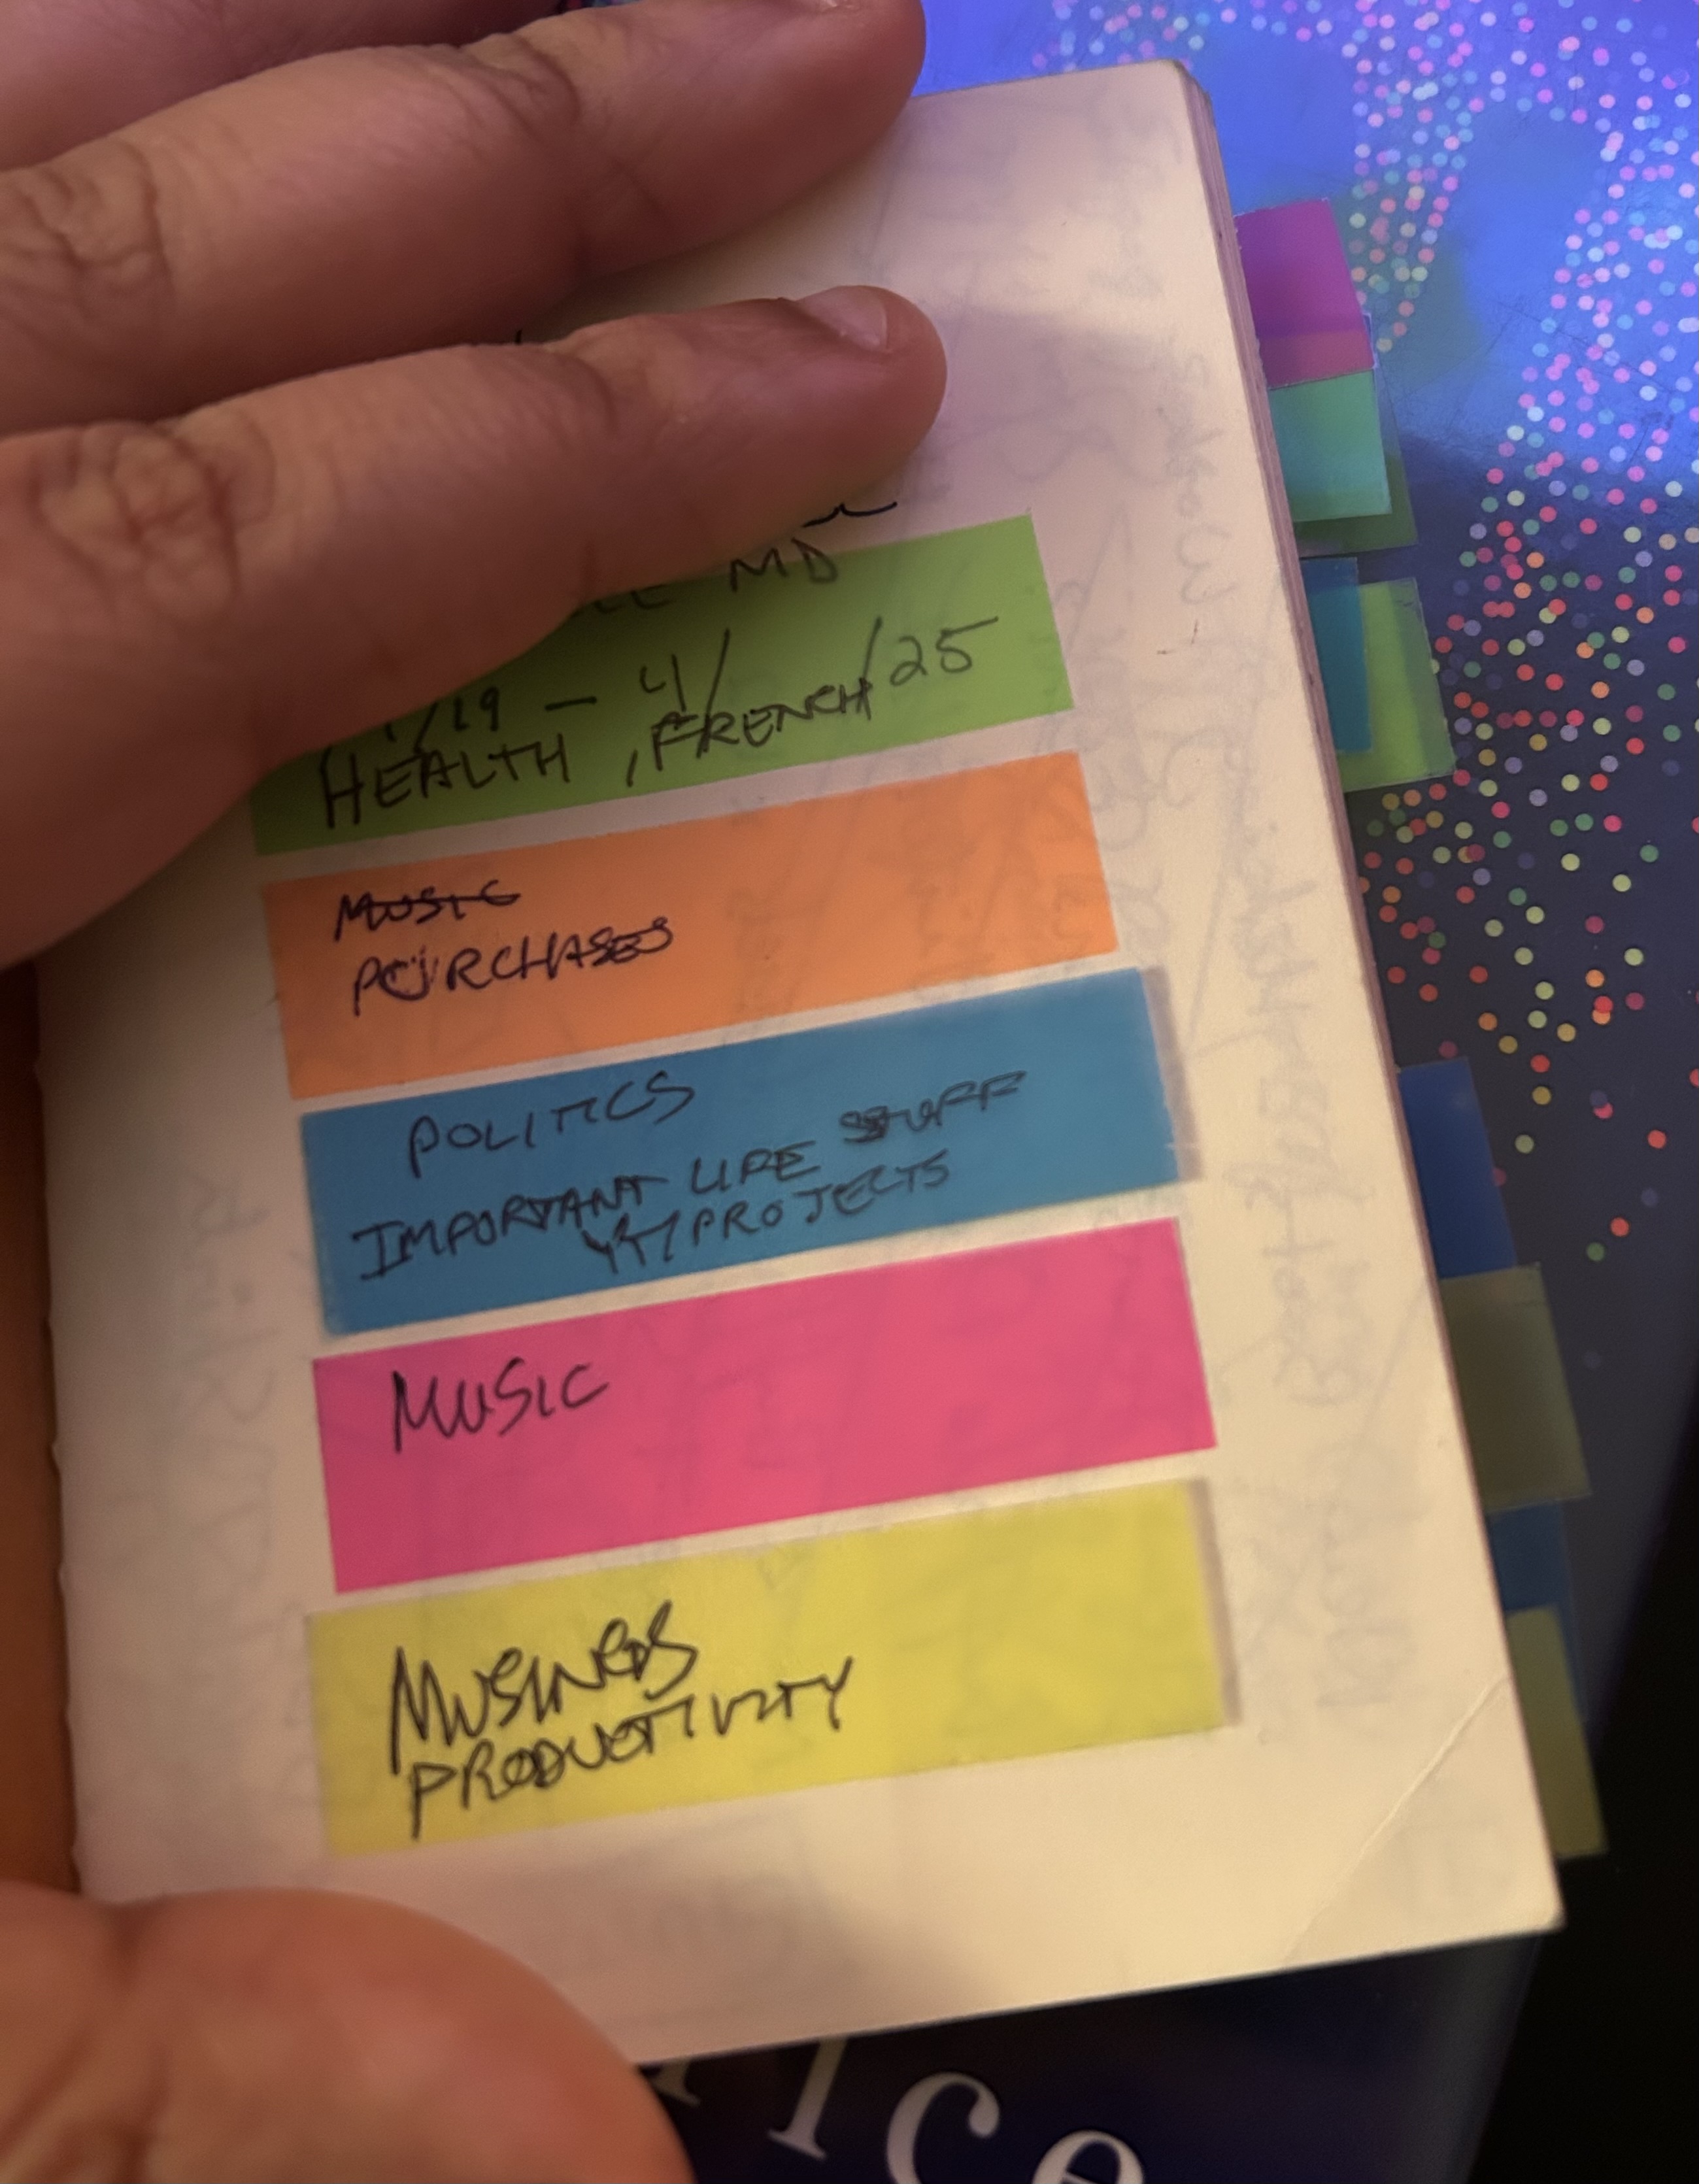 MD
/19 - 4/ /25
HEALTH, FRENCH
MUSIC
PURCHASES
POLITICS
IMPORTANT LIFE STUFF
YT/PROJECTS
MUSIC
MUSINGS
PRODUCTIVITY
ice